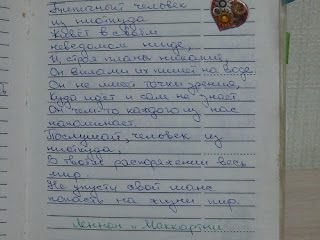 Типичный человек
из ниоткуда
Живёт в своём
неведомом нигде,
И строя планы никакие,
Он вилами их пишет на воде.
Он не имеет точки зрения,
Куда идёт и сам не знает.
Он чем-то каждого из нас
напоминает.
Послушай, человек из
ниоткуда,
В твоём распоряжении весь
мир.
Не упусти свой шанс
попасть на жизни пир.
Леннон и Маккартни